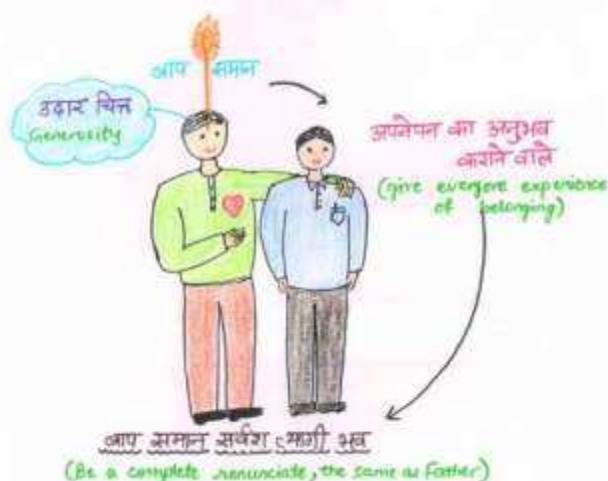 बाप समान
उदार चित्त
Generosity
अपनेपन का अनुभव
कराने वाले
(give everyone experience
of belonging)
बाप समान सर्वंश त्यागी भव
(Be a complete renunciate, the same as Father)